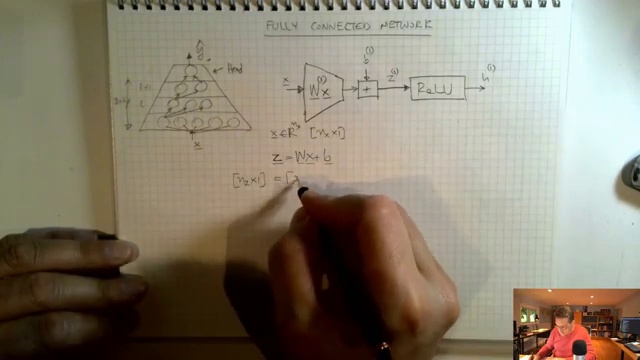 FULLY CONNECTED NETWORK
ŷ
Head
l+1
l
x
x
W⁽¹⁾x
b⁽¹⁾
+
z⁽¹⁾
ReLU
h⁽¹⁾
x ∈ ℝⁿˣ [nₓ×1]
z = Wx + b
[n_z×1] = [